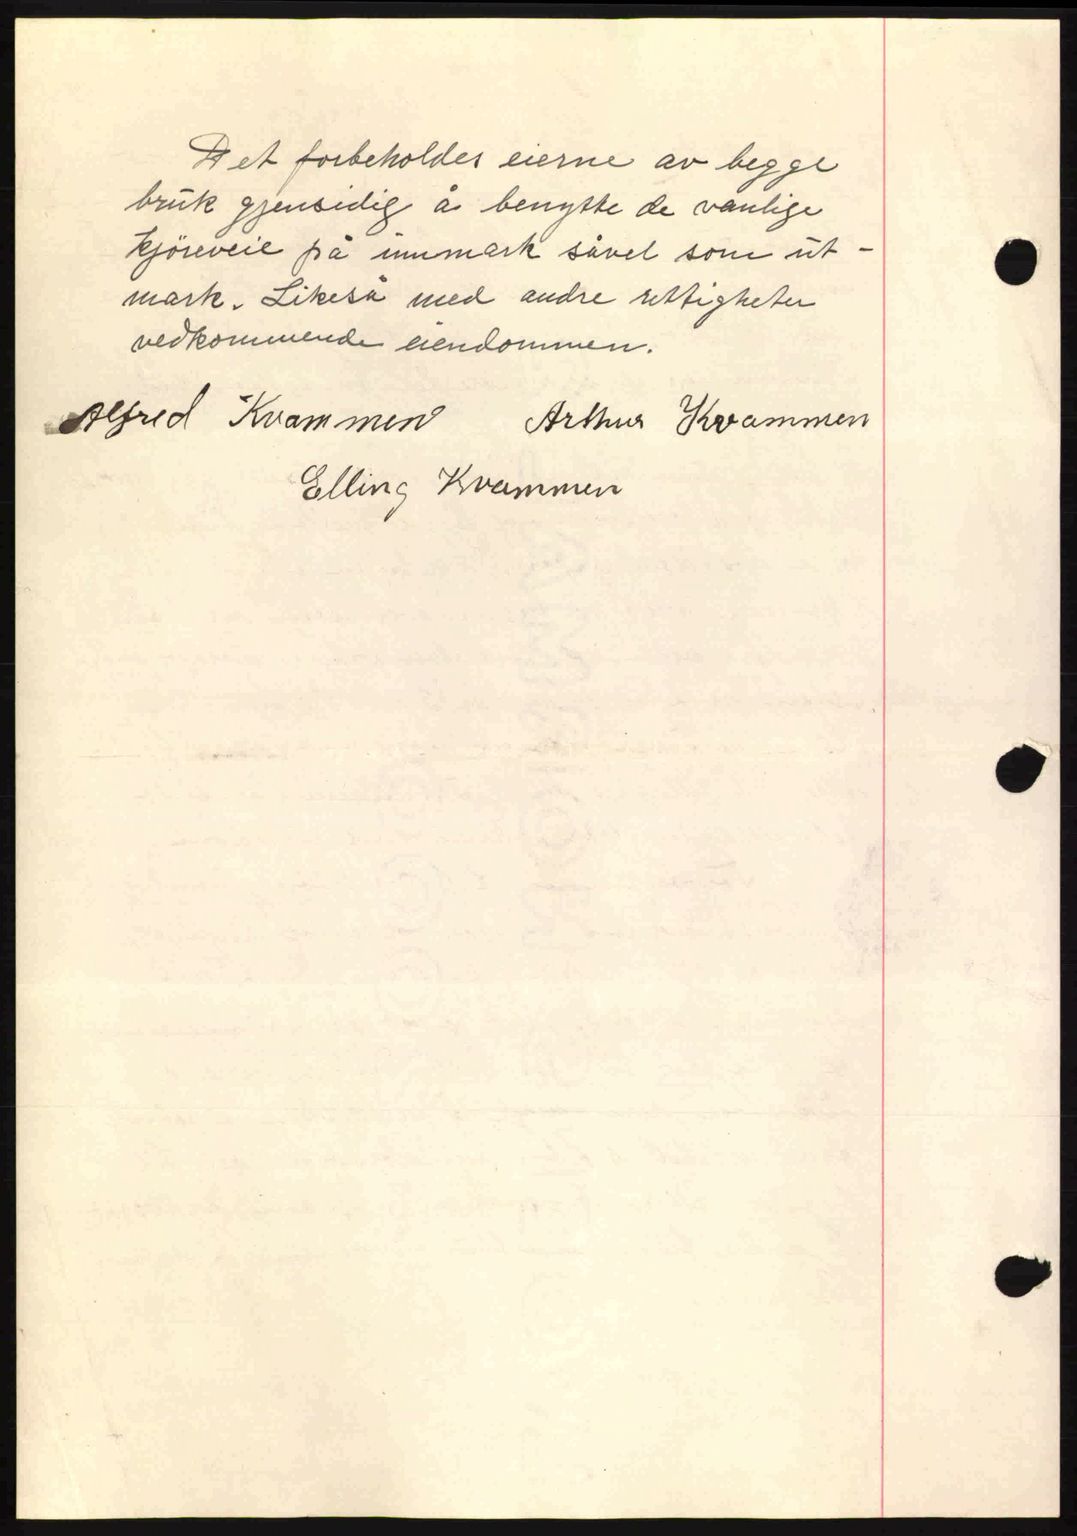 Det forbeholdes eierne av begge
bruk gjensidig å benytte de vanlige
kjöreveie på innmark såvel som ut-
mark. Likeså med andre rettigheter
vedkommende eiendommen.
Alfred Kvammen Arthur Kvammen
Elling Kvammen